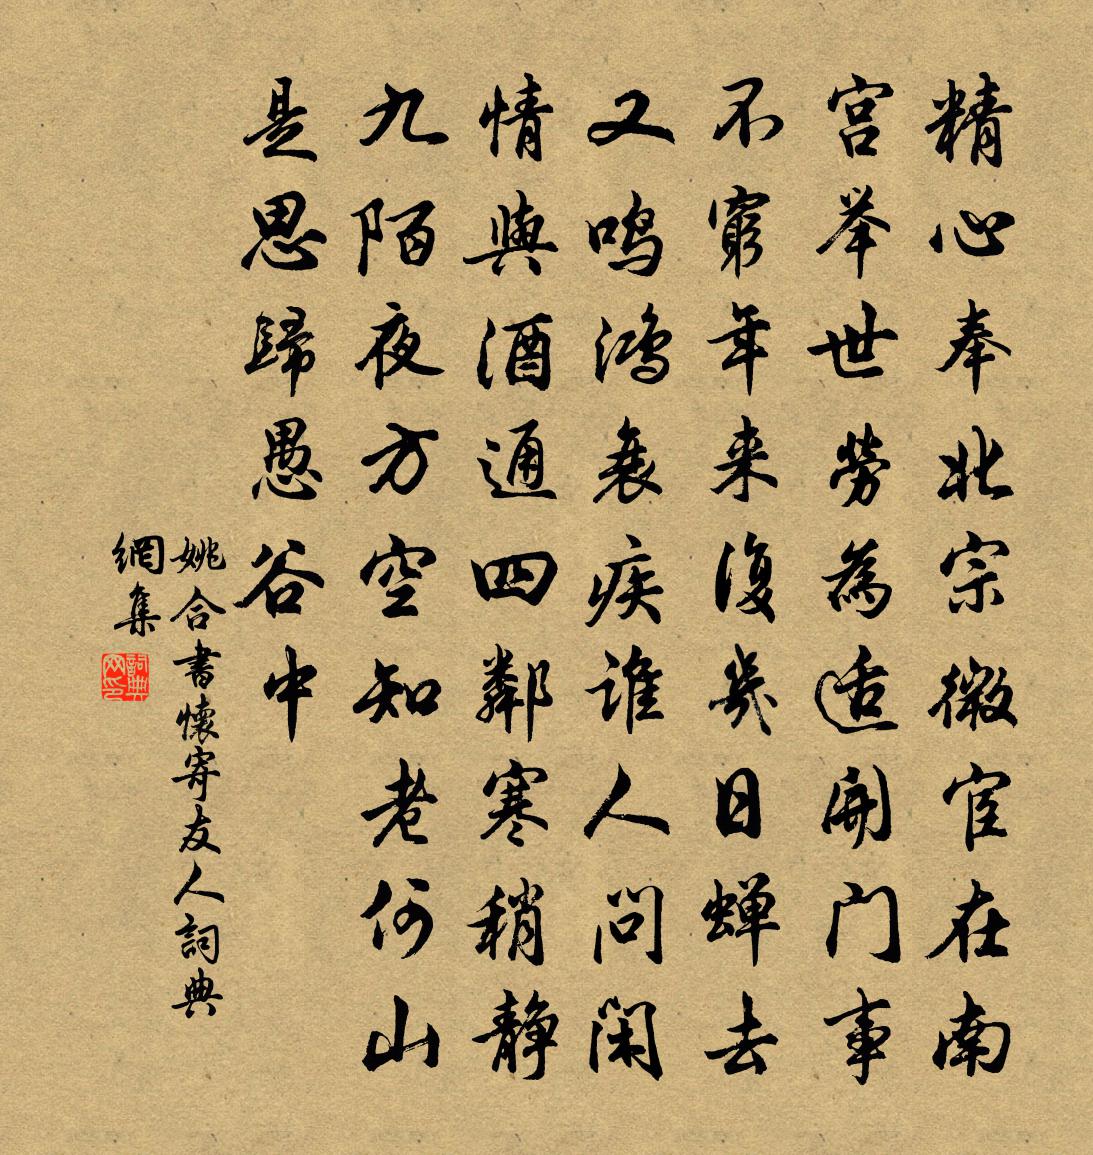 精心奉北宗微宦在南
宫举世勞為适開门事
不窮年来復幾日蝉去
又鸣鸿衰疾谁人问闲
情與酒通四鄰寒稍静
九陌夜方空知老何山
是思歸愚谷中
姚合書懷寄友人詞典
網集
詞典网印